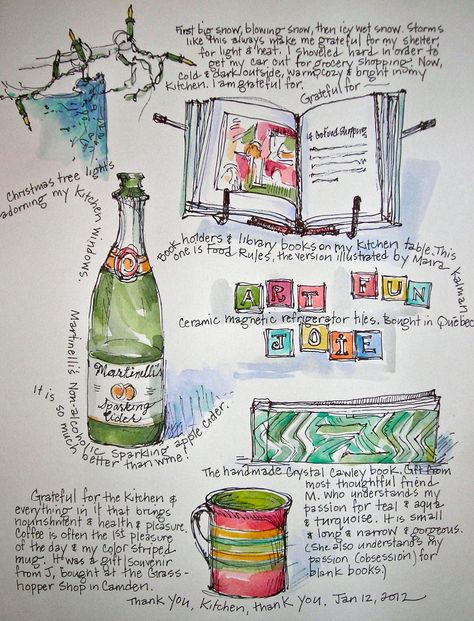 First big snow, blowing snow, then icy wet snow. Storms
like this always make me grateful for my shelter,
for light & heat. I shoveled hard in order to
get my car out for grocery shopping. Now,
cold & dark outside, warm, cozy & bright in my
Kitchen. I am grateful for.
Grateful for —
Christmas tree lights
adorning my Kitchen windows.
Book holders & library books on my kitchen table. This
one is Food Rules, the version illustrated by Maira Kalman
ART FUN
Ceramic magnetic refrigerator tiles. Bought in Québec
JOIE
Martinelli's
Sparkling
Cider
Martinelli's Non-alcoholic Sparkling apple cider.
It is so much better than wine!
The handmade Crystal Cawley book. Gift from
most thoughtful friend
M. who understands my
passion for teal & aqua
& turquoise. It is small
& long & narrow & gorgeous.
(She also understands my
passion (obsession) for
blank books.)
Grateful for the Kitchen &
everything in it that brings
nourishment & health & pleasure.
Coffee is often the 1st pleasure
of the day & my color striped
mug. It was a gift/souvenir
from J, bought at the Grass-
hopper Shop in Camden.
Thank you, Kitchen, thank you. Jan 12, 2012